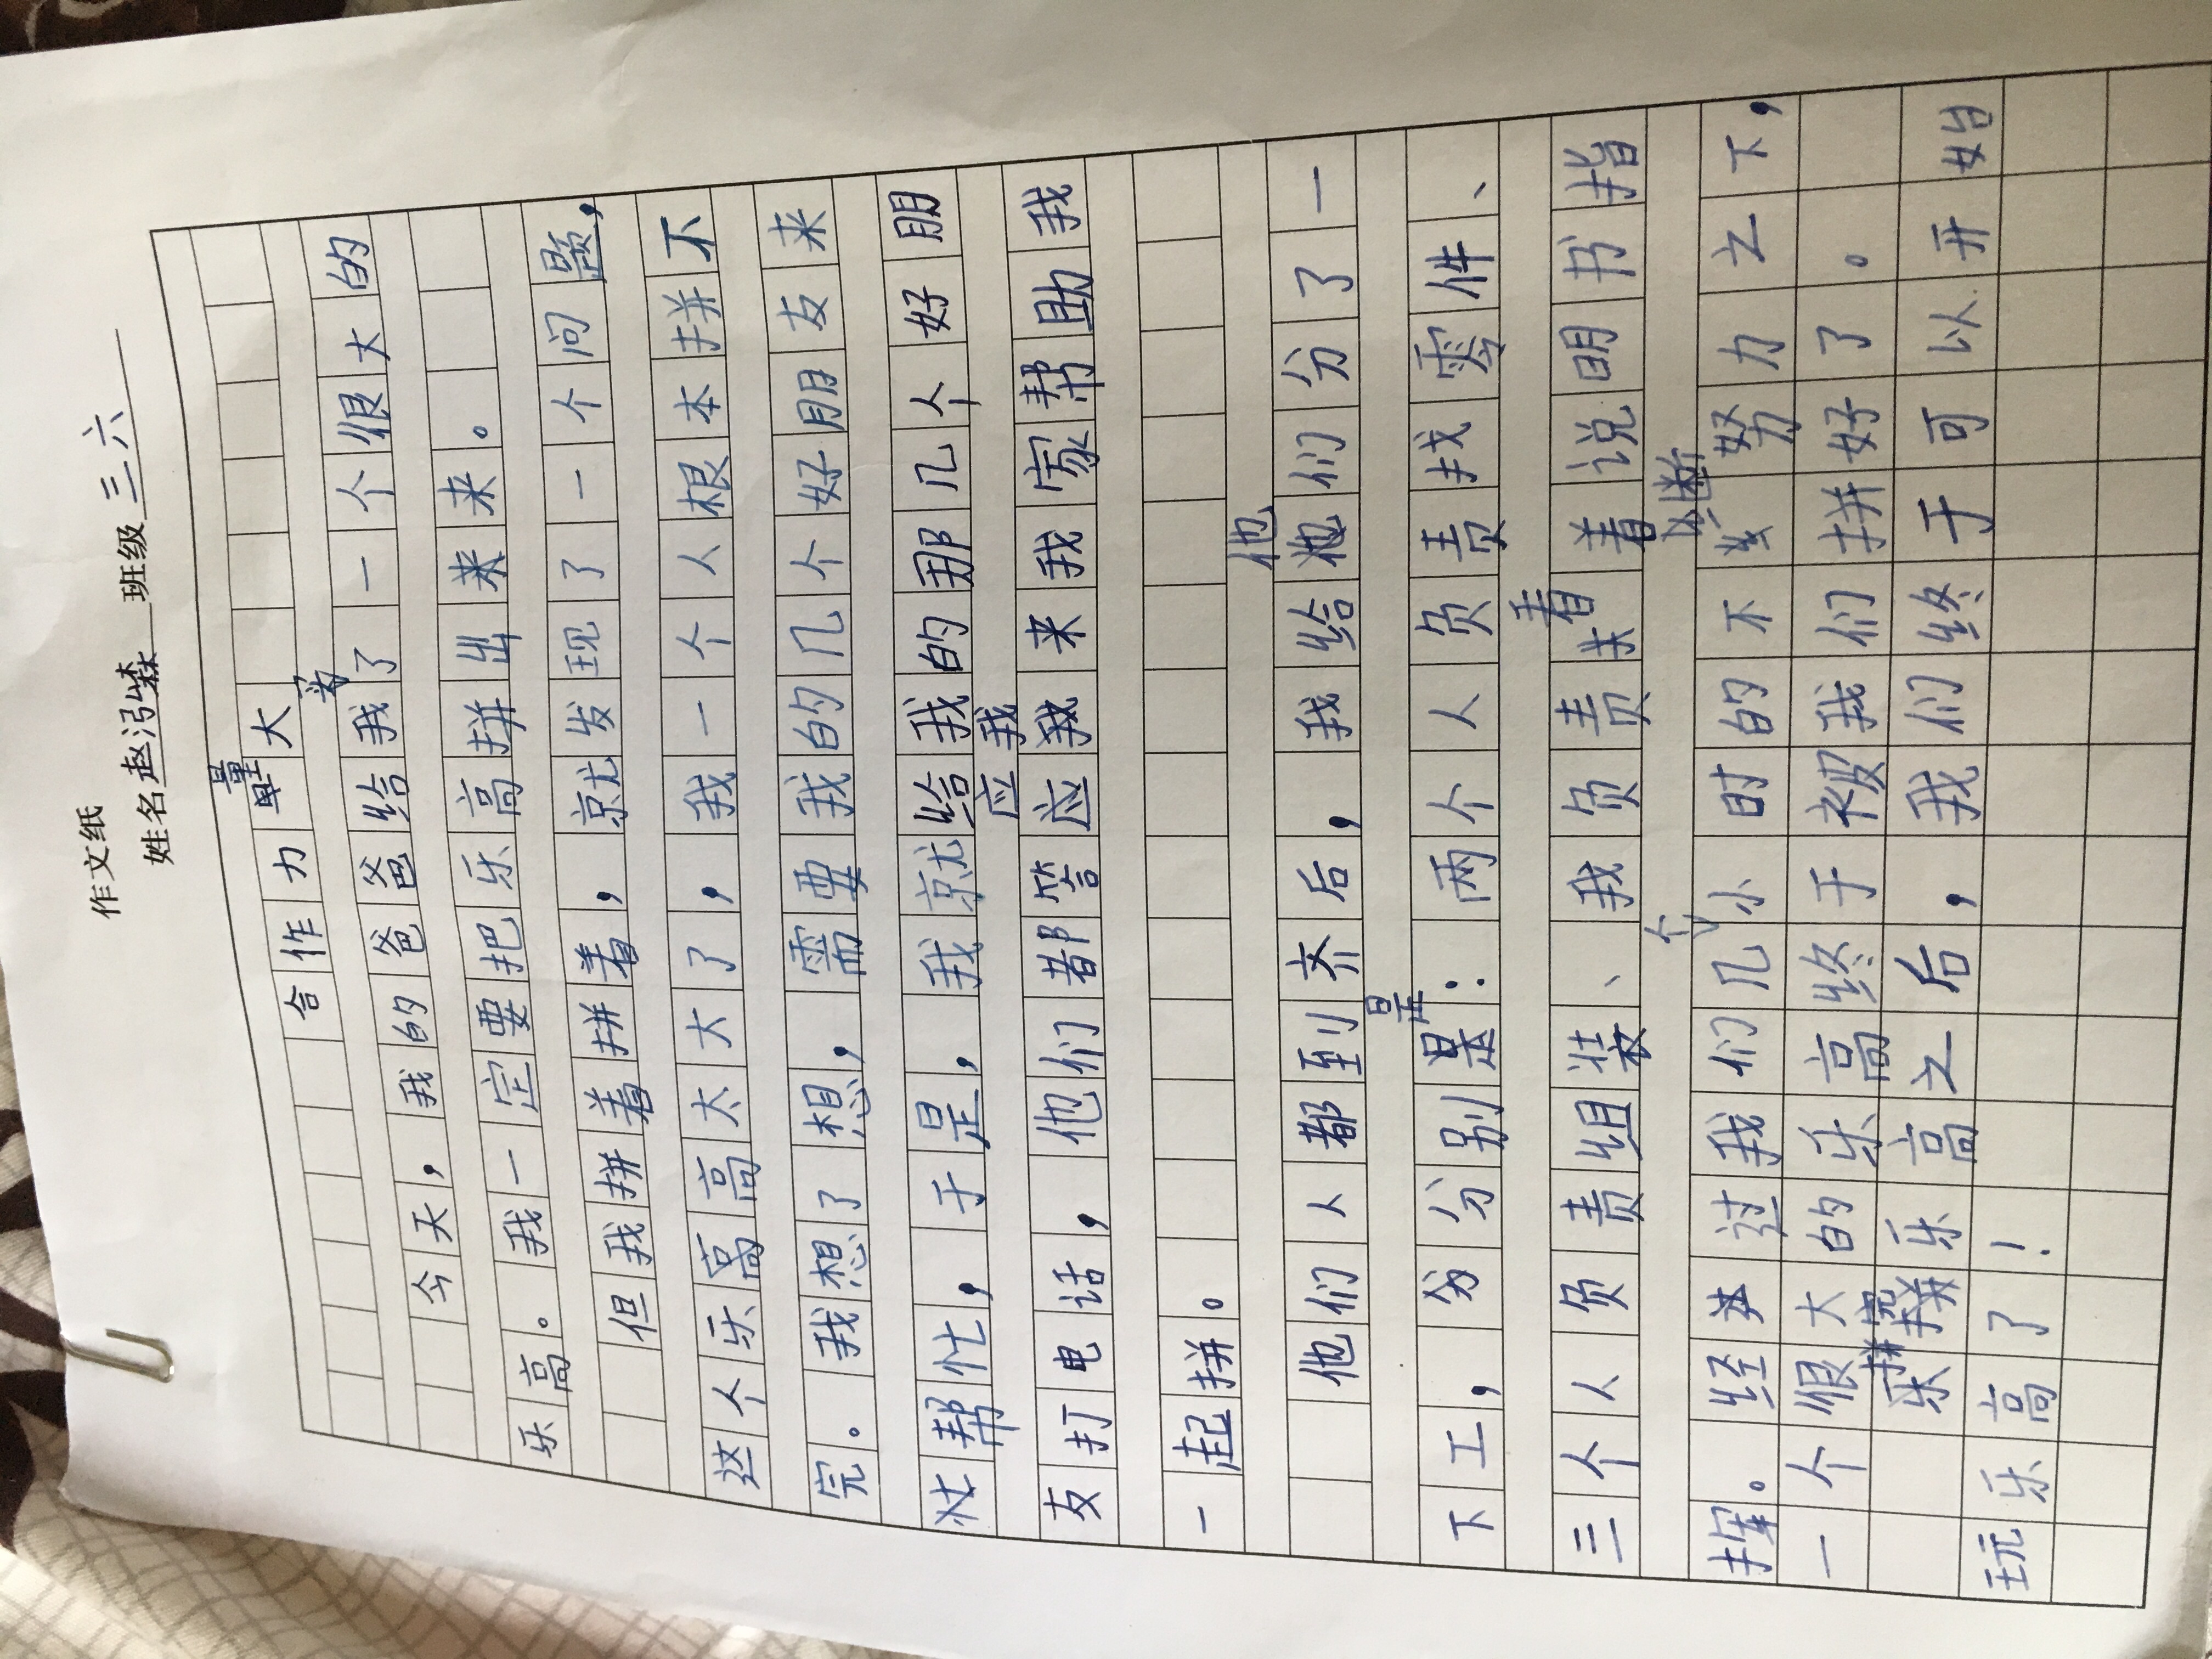 作文纸
姓名 赵泓森 班级 三六
合作力量大
今天，我的爸爸给我买了一个很大的
乐高。我一定要把乐高拼出来来。
但我拼着拼着，就发现了一个问题，
这个乐高高太大了，我一个人根本拼不
完。我想了想，需要我的几个好朋友来
忙帮忙，于是，我就给我的那几个好朋
友打电话，他们都答应我来我家帮助我
一起拼。
他们人都到齐后，我给他们分了一
下工，分别是：两个人负责找零件、
三个人负责组装、我负责拿着说明书指
挥。经过我们几个小时的不断努力之下，
一个很大的乐高终于被我们拼好了。
拼完乐高之后，我们终于可以开始
玩乐高了！